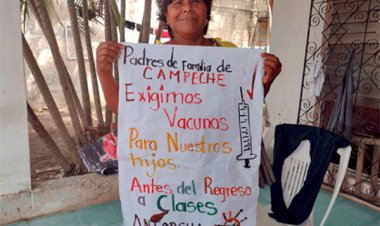 Padres de Familia de
CAMPECHE
Exigimos
Vacunas
Para Nuestros
hijos.
Antes del Regreso
a Clases